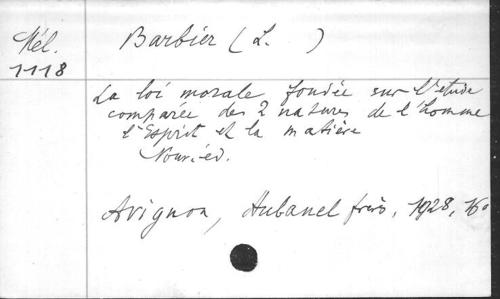 Mél.
1118
Barbier (L. )
La loi morale fondée sur l'étude
comparée des 2 natures de l'homme
l'Esprit et la matière
Nouv. éd.
Avignon, Aubanel frères, 1928, 16°